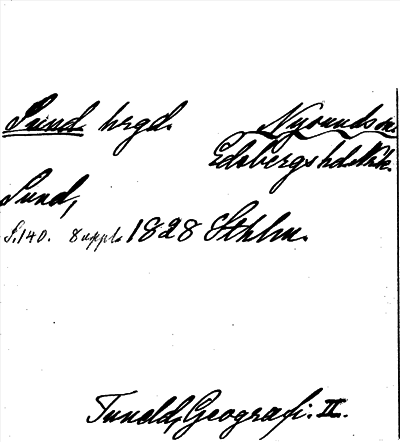 Sund hrgd. Nysunds sn.
Edsbergs hd. Nke.
Sund,
S.140. 8 uppl. 1828 Sthlm.
Tuneld, Geografi. II.